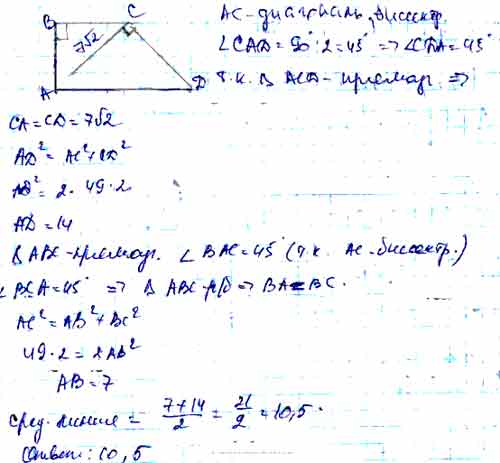 B C
7√2
A D
AC - диагональ, биссектр.
∠CAD = 90° : 2 = 45° => ∠CDA = 45°
т.к. Δ ACD - прямоуг. =>
CA = CD = 7√2
AD² = AC² + CD²
AD² = 2 · 49 · 2
AD = 14
Δ ABC - прямоуг. ∠ BAC = 45° (т.к. AC - биссектр.)
∠ BCA = 45° => Δ ABC - р/б => BA = BC.
AC² = AB² + BC²
49 · 2 = 2AB²
AB = 7
сред. линия = (7+14)/2 = 21/2 = 10,5
Ответ: 10,5